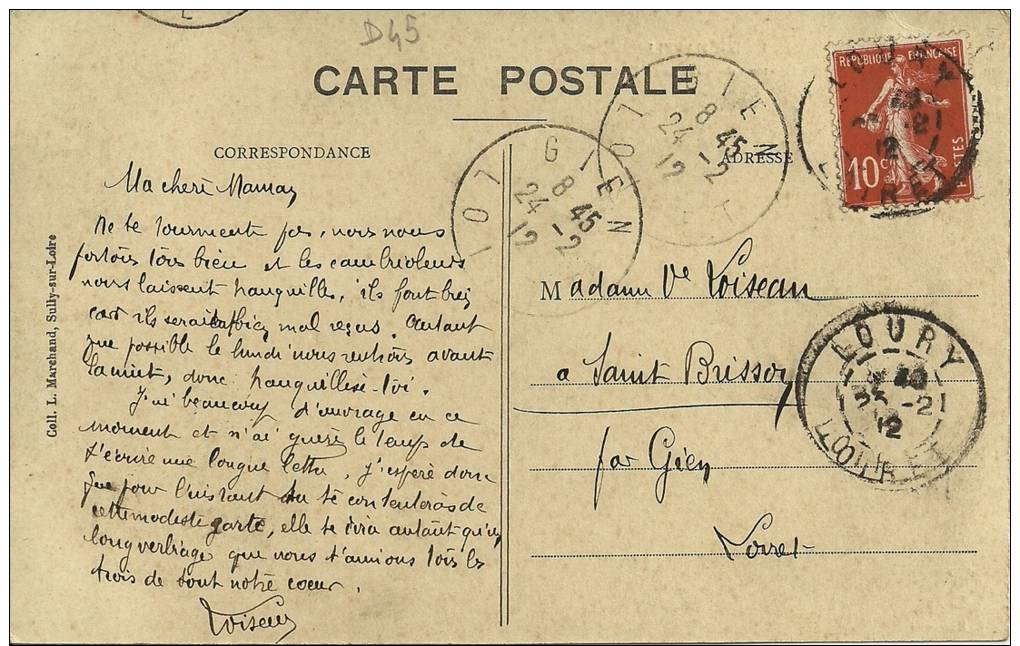 D45
CARTE POSTALE
CORRESPONDANCE
ADRESSE
Ma chere Maman
Ne te tourmente pas, nous nous
portons tous bien et les cambrioleurs
nous laissent tranquilles, ils font bien
car ils seraient bien mal reçus. Autant
que possible le lundi nous rentrons avant
la nuit, donc tranquillise-toi.
J'ai beaucoup d'ouvrage en ce
moment et n'ai guère le temps de
t'écrire une longue lettre, j'espère donc
que pour l'instant tu te contenteras de
cette modeste carte, elle te dira autant qu'un
long verbiage que nous t'aimons tous les
trois de tout notre coeur.
Loiseau
Madame Ve Loiseau
a Saint Brisson
par Gien
Loiret
Coll. L. Marchand, Sully-sur-Loire
REPUBLIQUE FRANÇAISE
10c POSTES
LOURY
LOIRET
GIEN
8 45
24 - 2
12
GIEN
8 45
24 - 2
12
LOURY
25 - 2
12
LOIRET